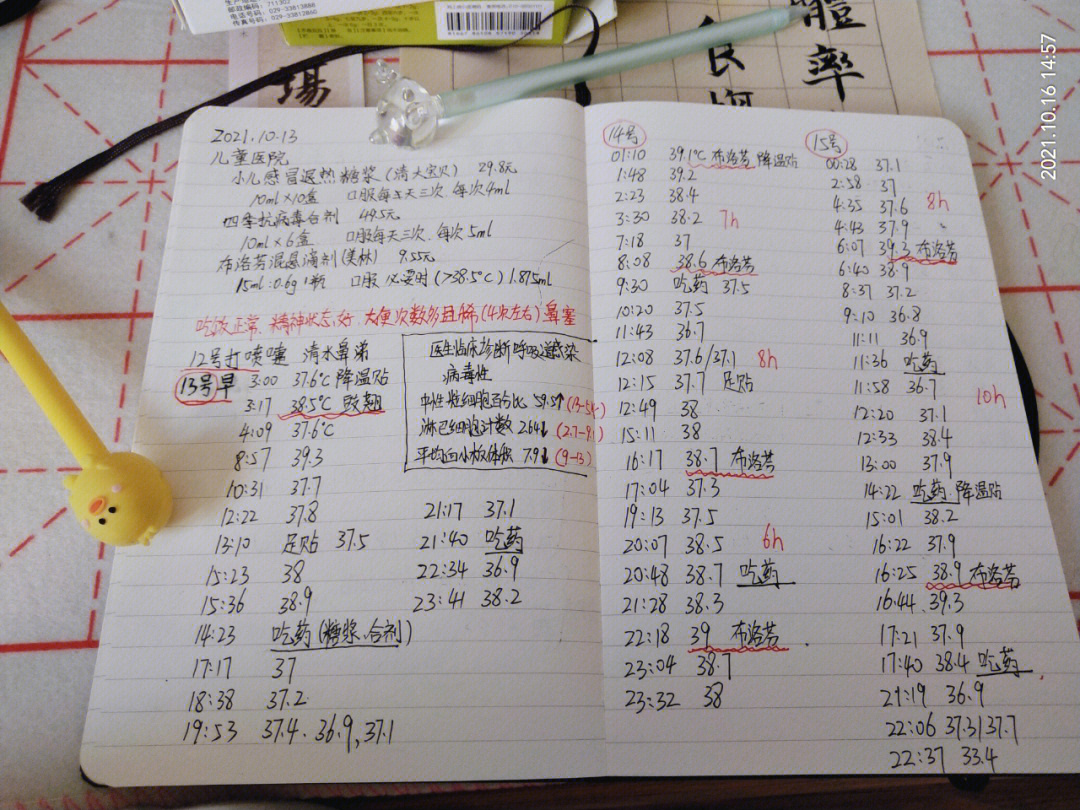 711302
电话号码: 029-33813888
传真号码: 029-33812860
場
體
率
良
2021.10.16 14:57
2021.10.13
儿童医院
小儿感冒退热糖浆(清大宝贝) 29.8元
10ml×10盒 口服每天三次 每次4ml
四季抗病毒合剂 49.5元
10ml×6盒 口服每天三次. 每次5ml
布洛芬混悬滴剂(美林) 9.55元
15ml:0.6g 1瓶 口服 必要时(>38.5℃) 1.875ml
吃饭正常. 精神状态好. 大便次数多且稀(4次左右) 鼻塞
12号打喷嚏 清水鼻涕
13号早 3:00 37.6℃ 降温贴
3:17 38.5℃
4:09 37.6℃
8:57 39.3
10:31 37.7
12:22 37.8
13:10 足贴 37.5
15:23 38
15:36 38.9
14:23 吃药(糖浆、合剂)
17:17 37
18:38 37.2
19:53 37.4. 36.9, 37.1
医生临床诊断呼吸道感染
病毒性
中性粒细胞百分比 59.5↑
淋巴细胞计数 2.64↓
平均血小板体积 7.9↓ (9-13)
21:17 37.1
21:40 吃药
22:34 36.9
23:41 38.2
14号
01:10 39.1℃ 布洛芬 降温贴
1:48 39.2
2:23 38.4
3:30 38.2 7h
7:18 37
8:08 38.6 布洛芬
9:30 吃药 37.5
10:20 37.5
11:43 36.7
12:08 37.6/37.1 8h
12:15 37.7 足贴
12:49 38
15:11 38
16:17 38.7 布洛芬
17:04 37.3
19:13 37.5
20:07 38.5 6h
20:48 38.7 吃药
21:28 38.3
22:18 39 布洛芬
23:04 38.7
23:32 38
15号
00:28 37.1
2:58 37
4:35 37.6 8h
4:43 37.9
6:07 39.3 布洛芬
6:40 38.9
8:37 37.2
9:10 36.8
11:11 36.9
11:36 吃药
11:58 36.7 10h
12:20 37.1
12:33 38.4
13:00 37.9
14:22 吃药 降温贴
15:01 38.2
16:22 37.9
16:25 38.9 布洛芬
16:44 39.3
17:21 37.9
17:40 38.4 吃药
21:19 36.9
22:06 37.3/37.7
22:37 33.4